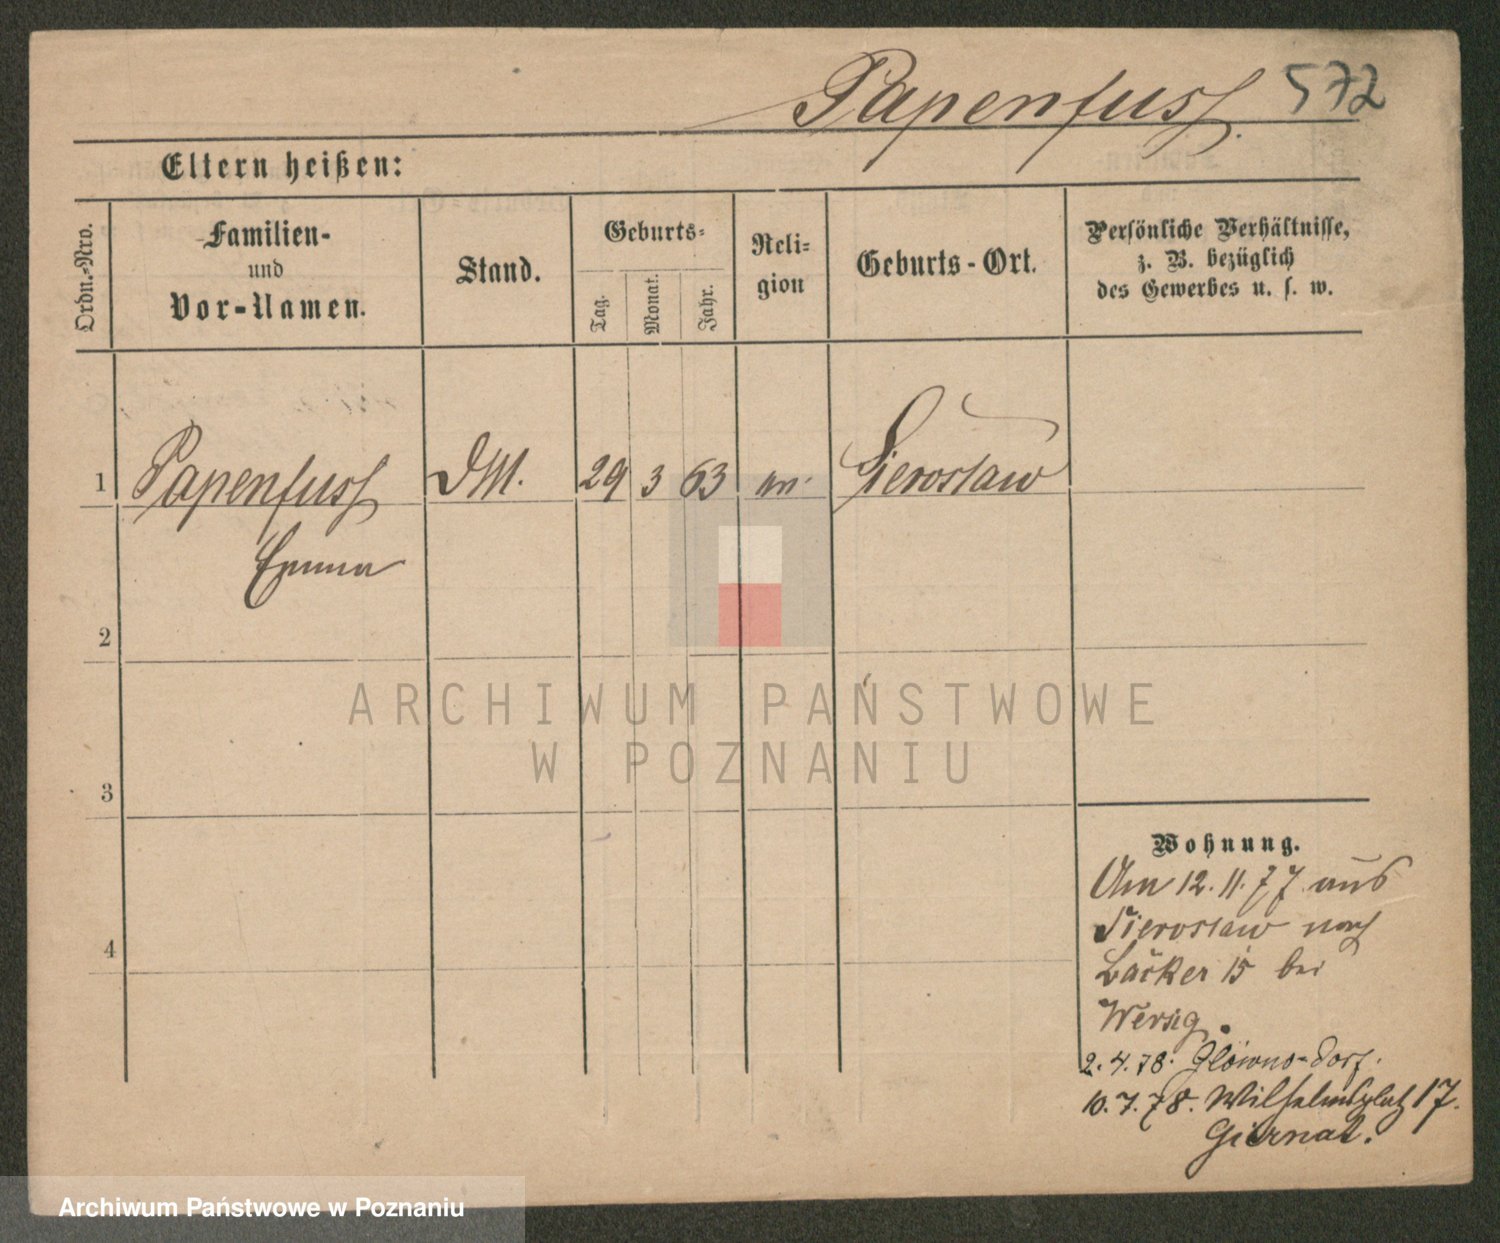 Papenfuss. 572
Eltern heißen:
Ordn.-Nro.
Familien-
und
Vor-Namen.
Stand.
Geburts-
Tag.
Monat.
Jahr.
Reli-
gion
Geburts-Ort.
Persönliche Verhältnisse,
z. B. bezüglich
des Gewerbes u. s. w.
1 Papenfuss DM. 29 3 63
Emma
2
3
4
ARCHIWUM PAŃSTWOWE
W POZNANIU
Wohnung.
Am 12. 11. 77 aus
Sieroslaw nach
Bäcker 15 bei
Wersig.
2. 4. 78. Glowno-Dorf.
10. 7. 78. Wilhelmsplatz 17.
Giernat.
Archiwum Państwowe w Poznaniu